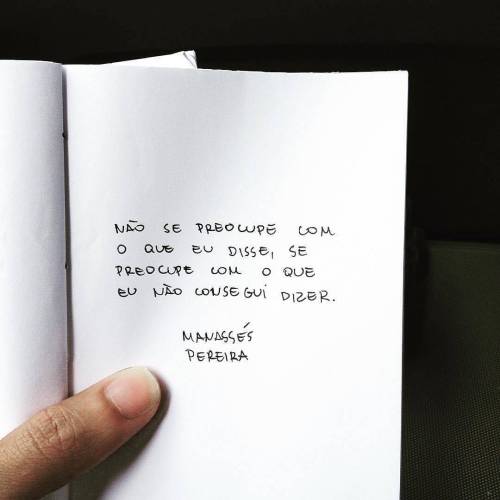 NÃO SE PREOCUPE COM
O QUE EU DISSE, SE
PREOCUPE COM O QUE
EU NÃO CONSEGUI DIZER.
MANASSÉS
PEREIRA